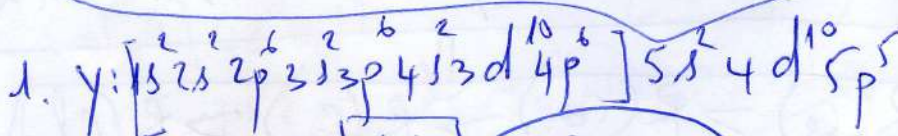 1. y: [1s² 2s² 2p⁶ 3s² 3p⁶ 4s² 3d¹⁰ 4p⁶] 5s² 4d¹⁰ 5p⁵